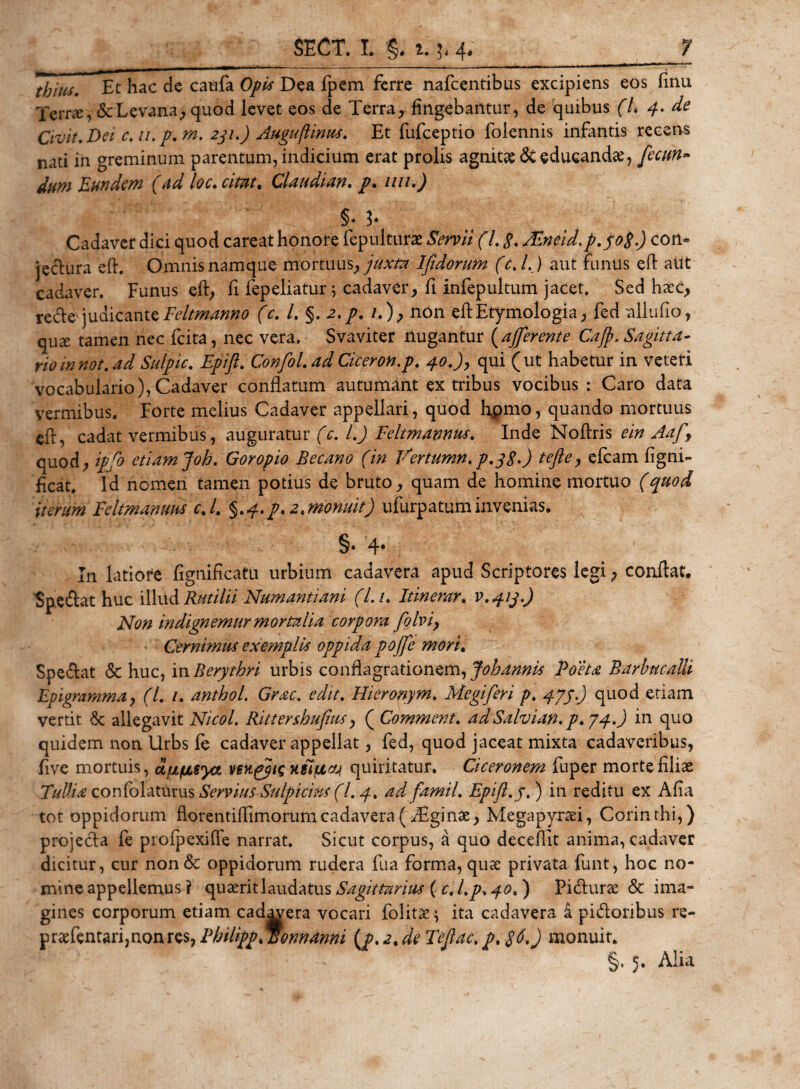 SECT. I. §. 2. 3. 4. 7
thius. Et hac de caufa Opis Dea fpem ferre nafcentibus excipiens eos finu
Terræ, & Levana, quod levet eos de Terra, fingebantur, de quibus (l. 4. de
Civit. Dei c. 11. p. m. 231.) Auguftinus. Et fufceptio folennis infantis recens
nati in greminum parentum, indicium erat prolis agnitæ & educandæ, fecun-
dum Eundem (ad loc. citat. Claudian. p. 1111.)
§. 3.
Cadaver dici quod careat honore fepulturæ Servii (l. 8. Æneid. p. 508.) con-
jectura eft. Omnis namque mortuus, juxta Ifidorum (c. l.) aut funus eft aut
cadaver. Funus eft, fi fepeliatur; cadaver, fi infepultum jacet. Sed hæc,
recte judicante Feltmanno (c. l. §. 2. p. 1.), non eft Etymologia, fed allufio,
quæ tamen nec fcita, nec vera. Svaviter nugantur (afferente Cafp. Sagitta-
rio in not. ad Sulpic. Epift. Confol. ad Ciceron. p. 40.), qui (ut habetur in veteri
vocabulario), Cadaver conflatum autumant ex tribus vocibus : Caro data
vermibus. Forte melius Cadaver appellari, quod homo, quando mortuus
eft, cadat vermibus, auguratur (c. l.) Feltmannus. Inde Noftris ein Aaf,
quod, ipfo etiam Joh. Goropio Becano (in Vertumn. p. 38.) tefte, efcam figni-
ficat. Id nomen tamen potius de bruto, quam de homine mortuo (quod
iterum Feltmanuus c. l. §. 4. p. 2. monuit) ufurpatum invenias.
§. 4.
In latiore fignificatu urbium cadavera apud Scriptores legi, conftat.
Spectat huc illud Rutilii Numantiani (l. 1. Itinerar. v. 413.)
Non indignemur mortalia corpora folvi,
Cernimus exemplis oppida poffe mori.
Spectat & huc, in Berythri urbis conflagrationem, Johannis Poëtæ Barbucalli
Epigramma, (l. 1. anthol. Græc. edit. Hieronym. Megiferi p. 475.) quod etiam
vertit & allegavit Nicol. Rittershufius, (Comment. ad Salvian. p. 74.) in quo
quidem non Urbs fe cadaver appellat, fed, quod jaceat mixta cadaveribus,
five mortuis, quiritatur. Ciceronem fuper morte filiæ
Tulliæ confolaturus Servius Sulpicius (l. 4. ad famil. Epift. 5.) in reditu ex Afia
tot oppidorum florentiffimorum cadavera (Æginæ, Megapyræi, Corinthi,)
projecta fe profpexiffe narrat. Sicut corpus, à quo deceffit anima, cadaver
dicitur, cur non & oppidorum rudera fua forma, quæ privata funt, hoc no-
mine appellemus? quærit laudatus Sagittarius (c. l. p. 40.) Picturæ & ima-
gines corporum etiam cadavera vocari folitæ; ita cadavera à pictoribus re-
præfentari, non res, Philipp. Bonnanni (p. 2. de Teftac. p. 86.) monuit.
§. 5. Alia